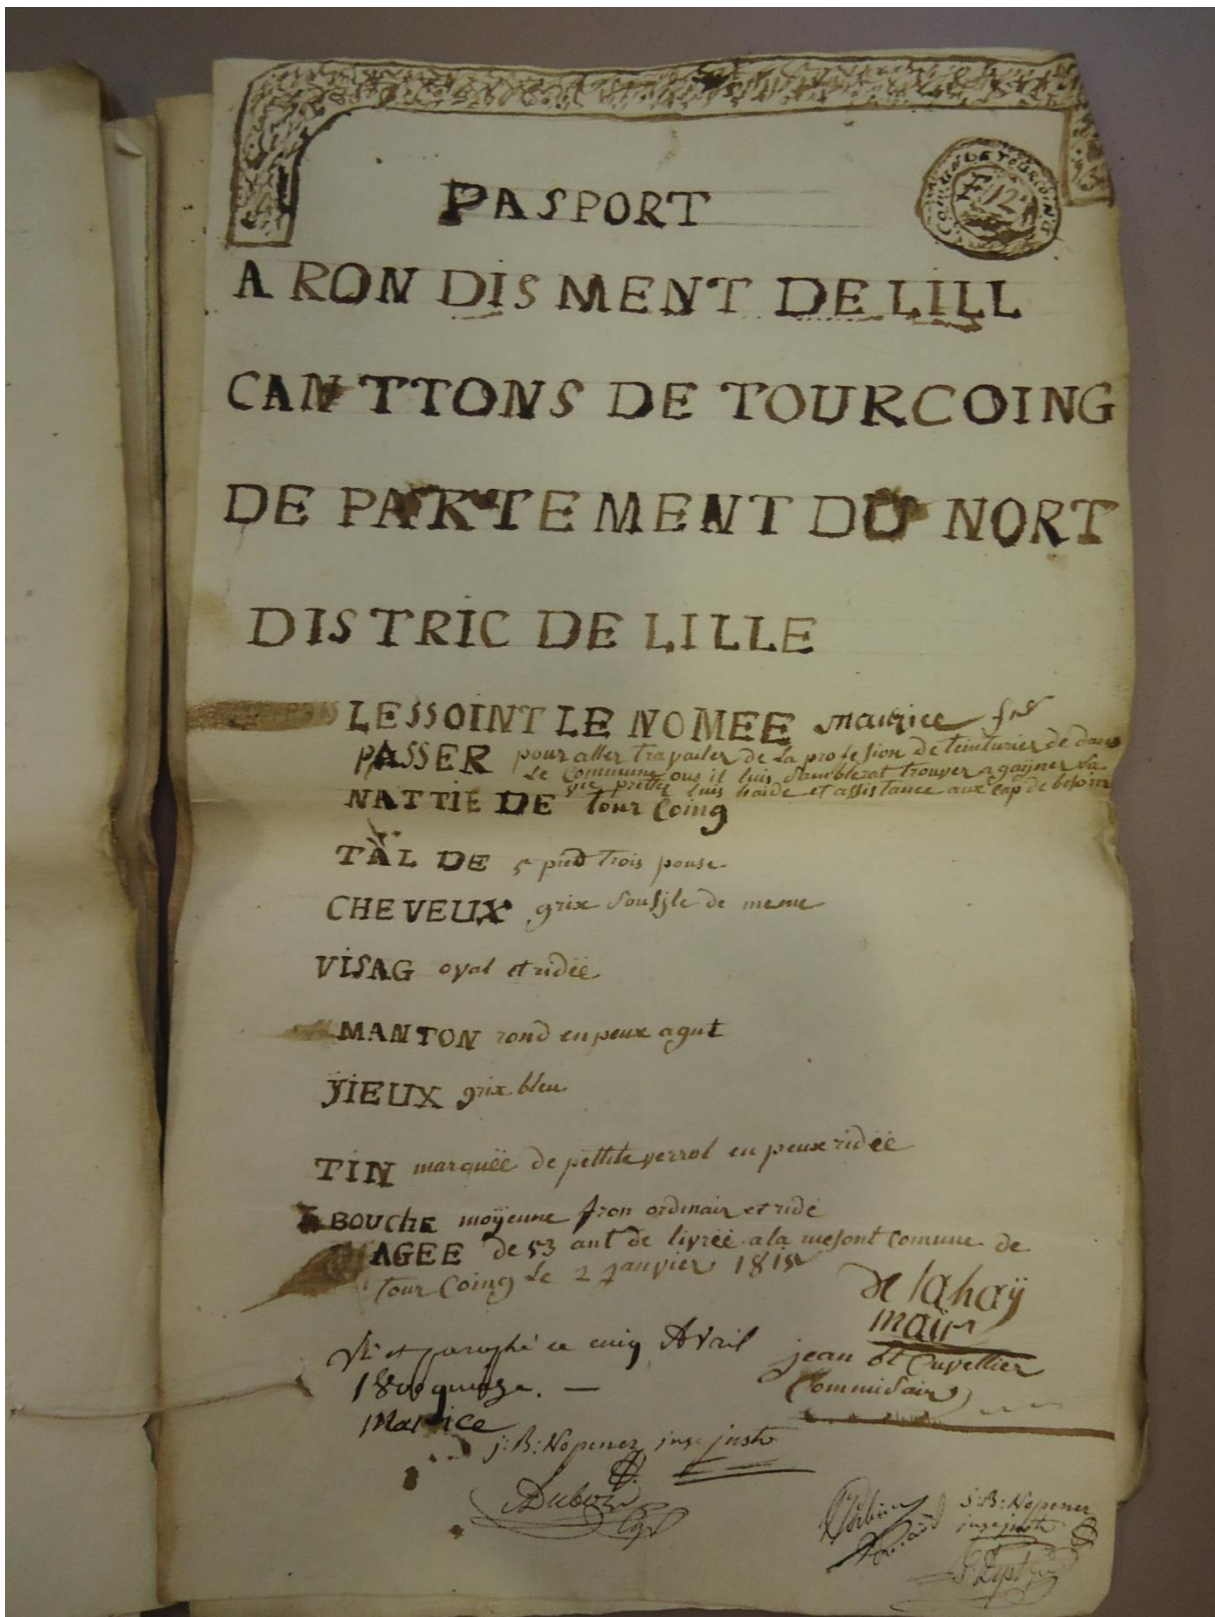 PASPORT
COMUNE DE TOURCOING
A RON DIS MENT DE LILL
CAN TTONS DE TOURCOING
DE PARTEMENT DU NORT
DISTRIC DE LILLE
LESSOINT LE NOMEE maurice
PASSER pour aller travailer de la profession de teinturier de dans
le Commune ous il luis samblerat trouver a gaÿner sa
vie pretté luis haide et assistance aux cap de besoin
NATTIE DE tour Coing
TAL DE 5 pied trois pouse
CHEVEUX grix soursÿle de meme
VISAG oval et ridéé
MANTON rond en peux agut
ŸIEUX grix bleu
TIN marquéé de pettite verrol en peux ridéé
BOUCHE moÿenne fron ordinair et ridé
AGEE de 53 ant de livréé a la mesont Comune de
tour Coing le 2 janvier 1815
de lahaÿ
mair
jean bt Cuvellier
Commisair
Vu et paraphé ce cinq Avril
1800 quinze. —
Maurice
j: B: Nopenez juge
Dubois
j: B: Nopenez